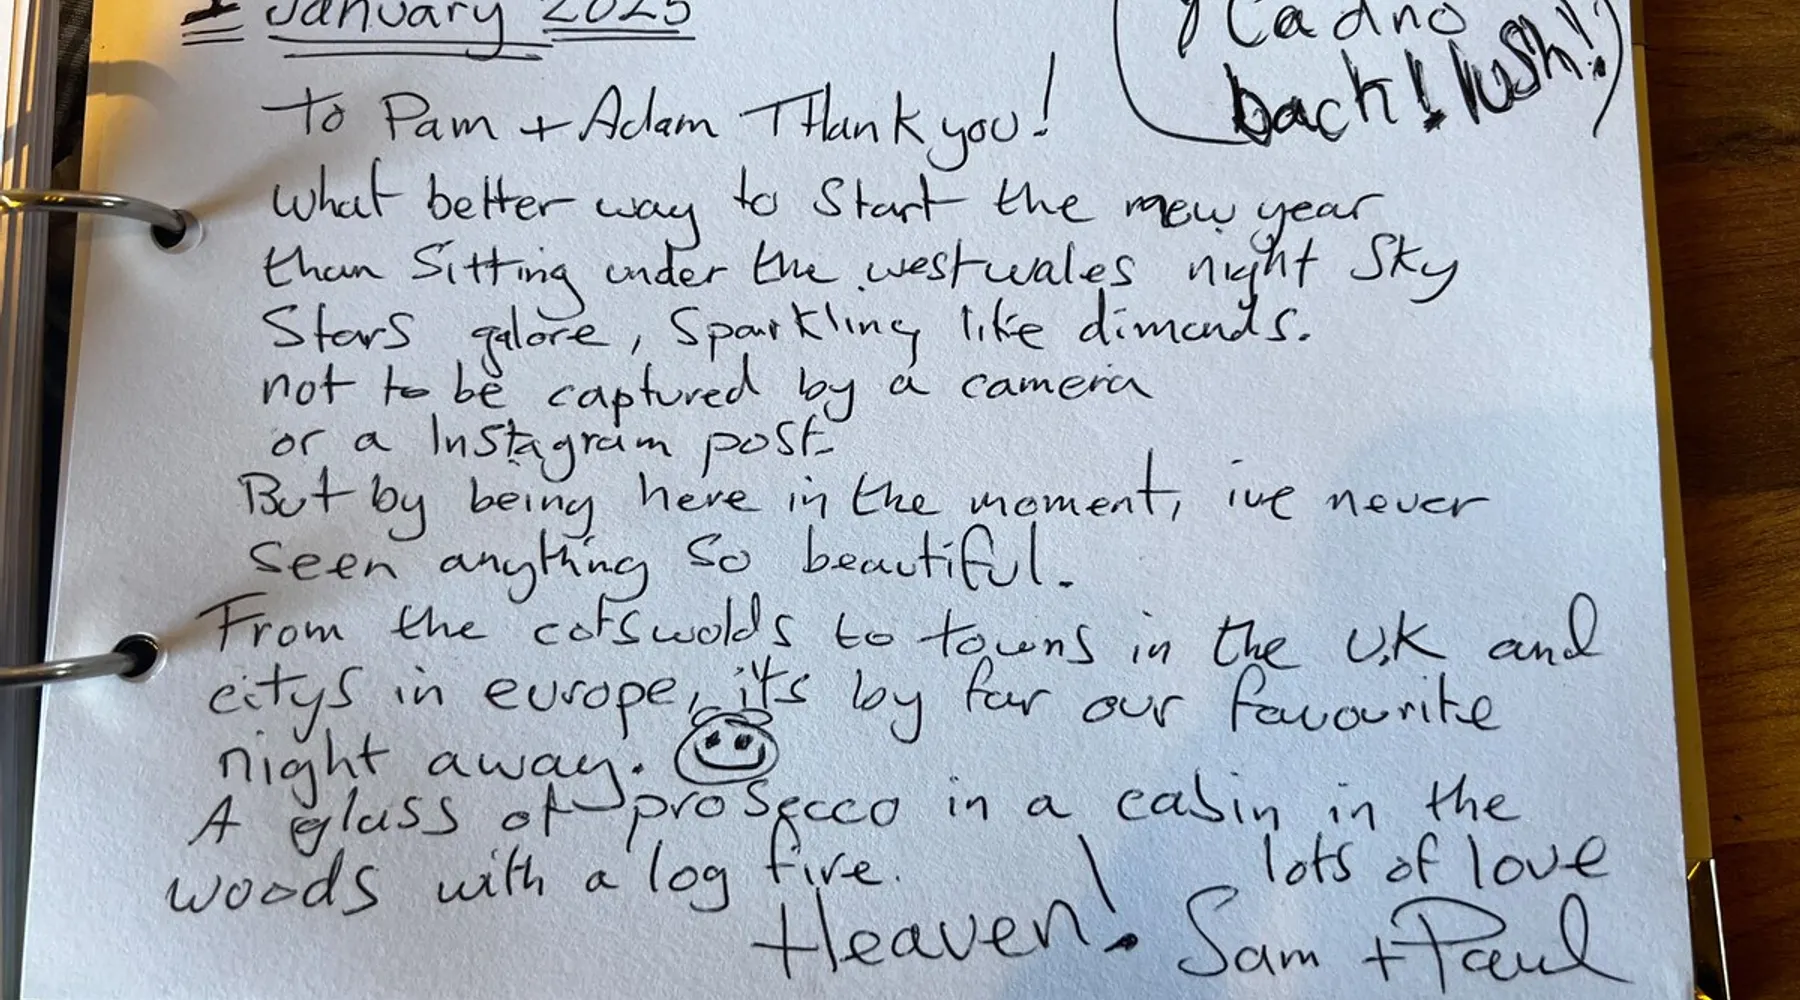 January 2025
Cadno
back! lush!!
To Pam + Adam Thank you!
What better way to Start the new year
than Sitting under the westwales night Sky
Stars galore, Sparkling like dimonds.
not to be captured by a camera
or a Instagram post.
But by being here in the moment, ive never
seen anything so beautiful.
From the cotswolds to towns in the U.K and
citys in europe, its by far our favourite
night away.
A glass of prosecco in a cabin in the
woods with a log fire.
Heaven!
lots of love
Sam + Paul